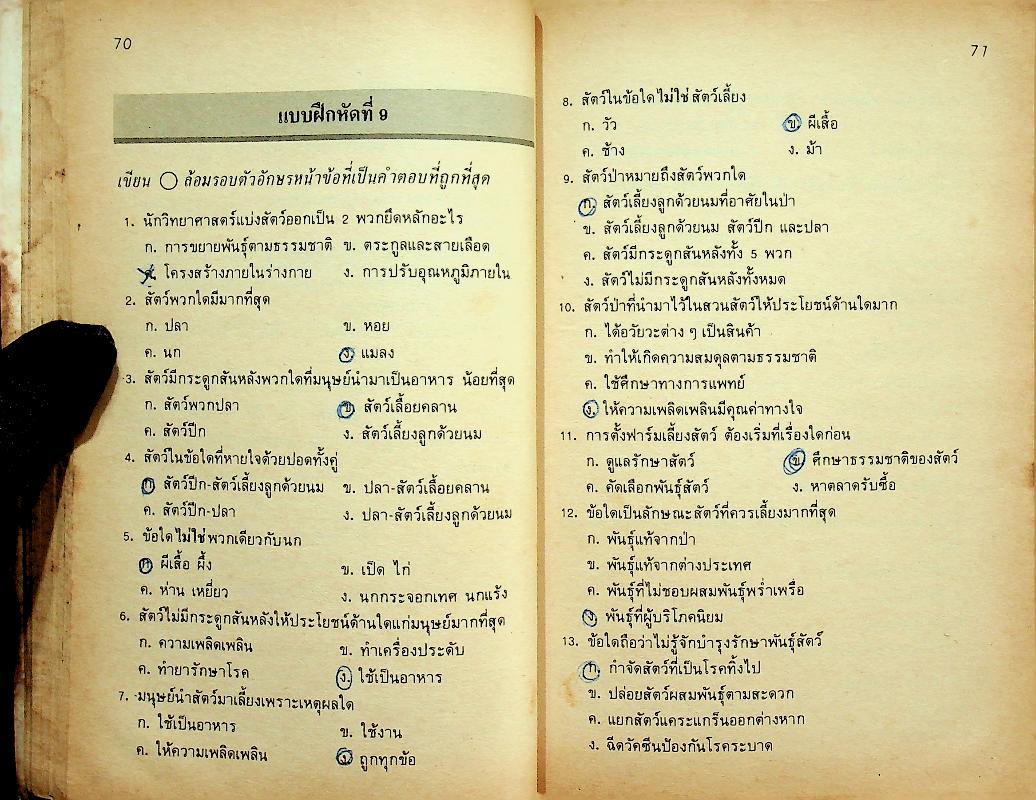 70
แบบฝึกหัดที่ 9
เขียน ◯ ล้อมรอบตัวอักษรหน้าข้อที่เป็นคำตอบที่ถูกที่สุด
1. นักวิทยาศาสตร์แบ่งสัตว์ออกเป็น 2 พวกยึดหลักอะไร
ก. การขยายพันธุ์ตามธรรมชาติ ข. ตระกูลและสายเลือด
ค. โครงสร้างภายในร่างกาย ง. การปรับอุณหภูมิภายใน
2. สัตว์พวกใดมีมากที่สุด
ก. ปลา ข. หอย
ค. นก ง. แมลง
3. สัตว์มีกระดูกสันหลังพวกใดที่มนุษย์นำมาเป็นอาหาร น้อยที่สุด
ก. สัตว์พวกปลา ข. สัตว์เลื้อยคลาน
ค. สัตว์ปีก ง. สัตว์เลี้ยงลูกด้วยนม
4. สัตว์ในข้อใดที่หายใจด้วยปอดทั้งคู่
ก. สัตว์ปีก-สัตว์เลี้ยงลูกด้วยนม ข. ปลา-สัตว์เลื้อยคลาน
ค. สัตว์ปีก-ปลา ง. ปลา-สัตว์เลี้ยงลูกด้วยนม
5. ข้อใดไม่ใช่พวกเดียวกับนก
ก. ผีเสื้อ ผึ้ง ข. เป็ด ไก่
ค. ห่าน เหยี่ยว ง. นกกระจอกเทศ นกแร้ง
6. สัตว์ไม่มีกระดูกสันหลังให้ประโยชน์ด้านใดแก่มนุษย์มากที่สุด
ก. ความเพลิดเพลิน ข. ทำเครื่องประดับ
ค. ทำยารักษาโรค ง. ใช้เป็นอาหาร
7. มนุษย์นำสัตว์มาเลี้ยงเพราะเหตุผลใด
ก. ใช้เป็นอาหาร ข. ใช้งาน
ค. ให้ความเพลิดเพลิน ง. ถูกทุกข้อ
71
8. สัตว์ในข้อใดไม่ใช่สัตว์เลี้ยง
ก. วัว ข. ผีเสื้อ
ค. ช้าง ง. ม้า
9. สัตว์ป่าหมายถึงสัตว์พวกใด
ก. สัตว์เลี้ยงลูกด้วยนมที่อาศัยในป่า
ข. สัตว์เลี้ยงลูกด้วยนม สัตว์ปีก และปลา
ค. สัตว์มีกระดูกสันหลังทั้ง 5 พวก
ง. สัตว์ไม่มีกระดูกสันหลังทั้งหมด
10. สัตว์ป่าที่นำมาไว้ในสวนสัตว์ให้ประโยชน์ด้านใดมาก
ก. ได้อวัยวะต่าง ๆ เป็นสินค้า
ข. ทำให้เกิดความสมดุลตามธรรมชาติ
ค. ใช้ศึกษาทางการแพทย์
ง. ให้ความเพลิดเพลินมีคุณค่าทางใจ
11. การตั้งฟาร์มเลี้ยงสัตว์ ต้องเริ่มที่เรื่องใดก่อน
ก. ดูแลรักษาสัตว์ ข. ศึกษาธรรมชาติของสัตว์
ค. คัดเลือกพันธุ์สัตว์ ง. หาตลาดรับซื้อ
12. ข้อใดเป็นลักษณะสัตว์ที่ควรเลี้ยงมากที่สุด
ก. พันธุ์แท้จากป่า
ข. พันธุ์แท้จากต่างประเทศ
ค. พันธุ์ที่ไม่ชอบผสมพันธุ์พร่ำเพรื่อ
ง. พันธุ์ที่ผู้บริโภคนิยม
13. ข้อใดถือว่าไม่รู้จักบำรุงรักษาพันธุ์สัตว์
ก. กำจัดสัตว์ที่เป็นโรคทิ้งไป
ข. ปล่อยสัตว์ผสมพันธุ์ตามสะดวก
ค. แยกสัตว์แคระแกร็นออกต่างหาก
ง. ฉีดวัคซีนป้องกันโรคระบาด